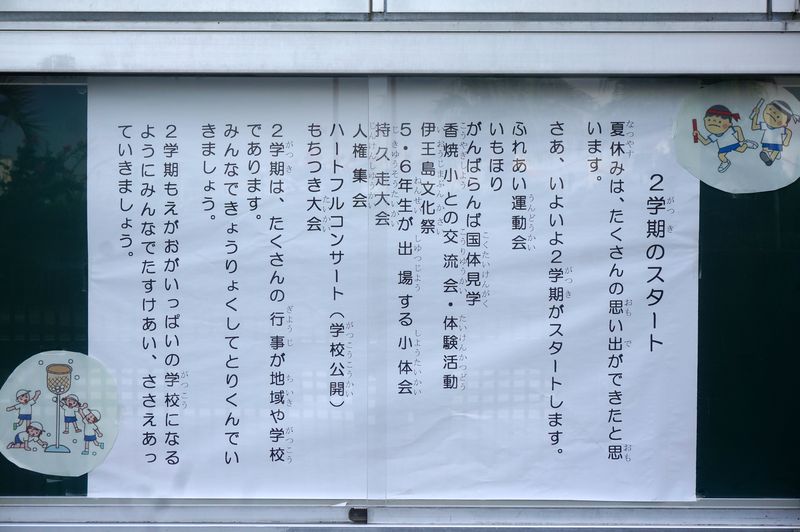 2学期のスタート
夏休みは、たくさんの思い出ができたと思
います。
さあ、いよいよ2学期がスタートします。
ふれあい運動会
いもほり
がんばらんば国体見学
香焼小との交流会・体験活動
伊王島文化祭
5・6年生が出場する小体会
持久走大会
人権集会
ハートフルコンサート(学校公開)
もちつき大会
2学期は、たくさんの行事が地域や学校
であります。
みんなできょうりょくしてとりくんでい
きましょう。
2学期もえがおがいっぱいの学校になる
ようにみんなでたすけあい、ささえあっ
ていきましょう。